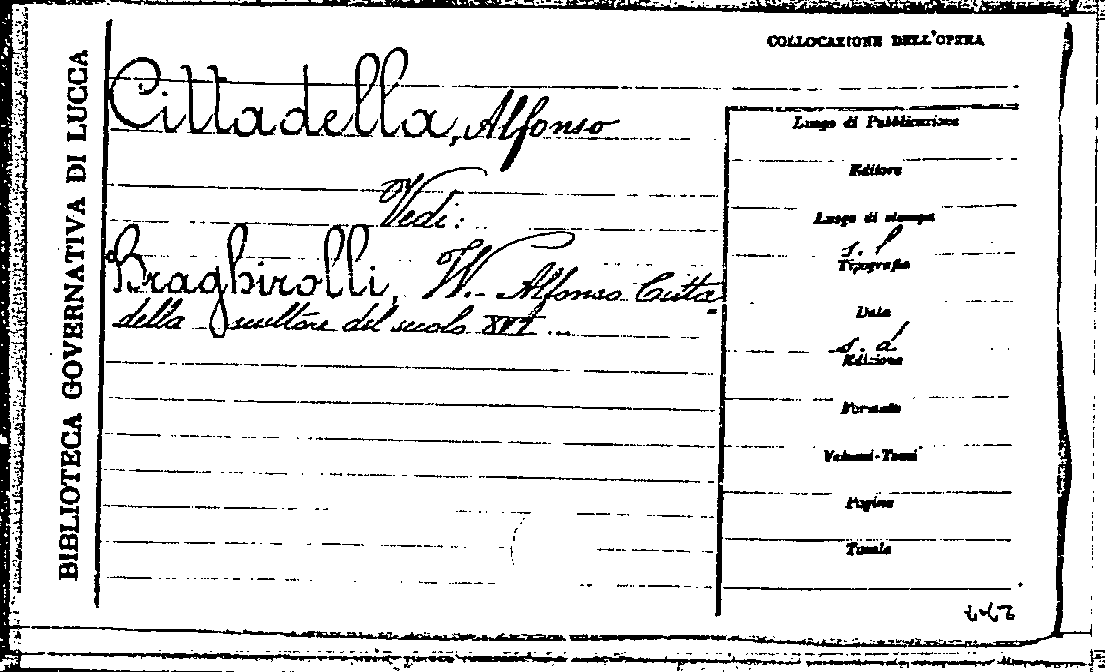 BIBLIOTECA GOVERNATIVA DI LUCCA
COLLOCAZIONE DELL'OPERA
Cittadella, Alfonso
Vedi:
Braghirolli, W. - Alfonso Citta
della scultore del secolo XVI ...
Luogo di Pubblicazione
Editore
Luogo di stampa
s. l
Tipografia
Data
s. d
Edizione
Formato
Volumi-Tomi
Pagine
Tavole